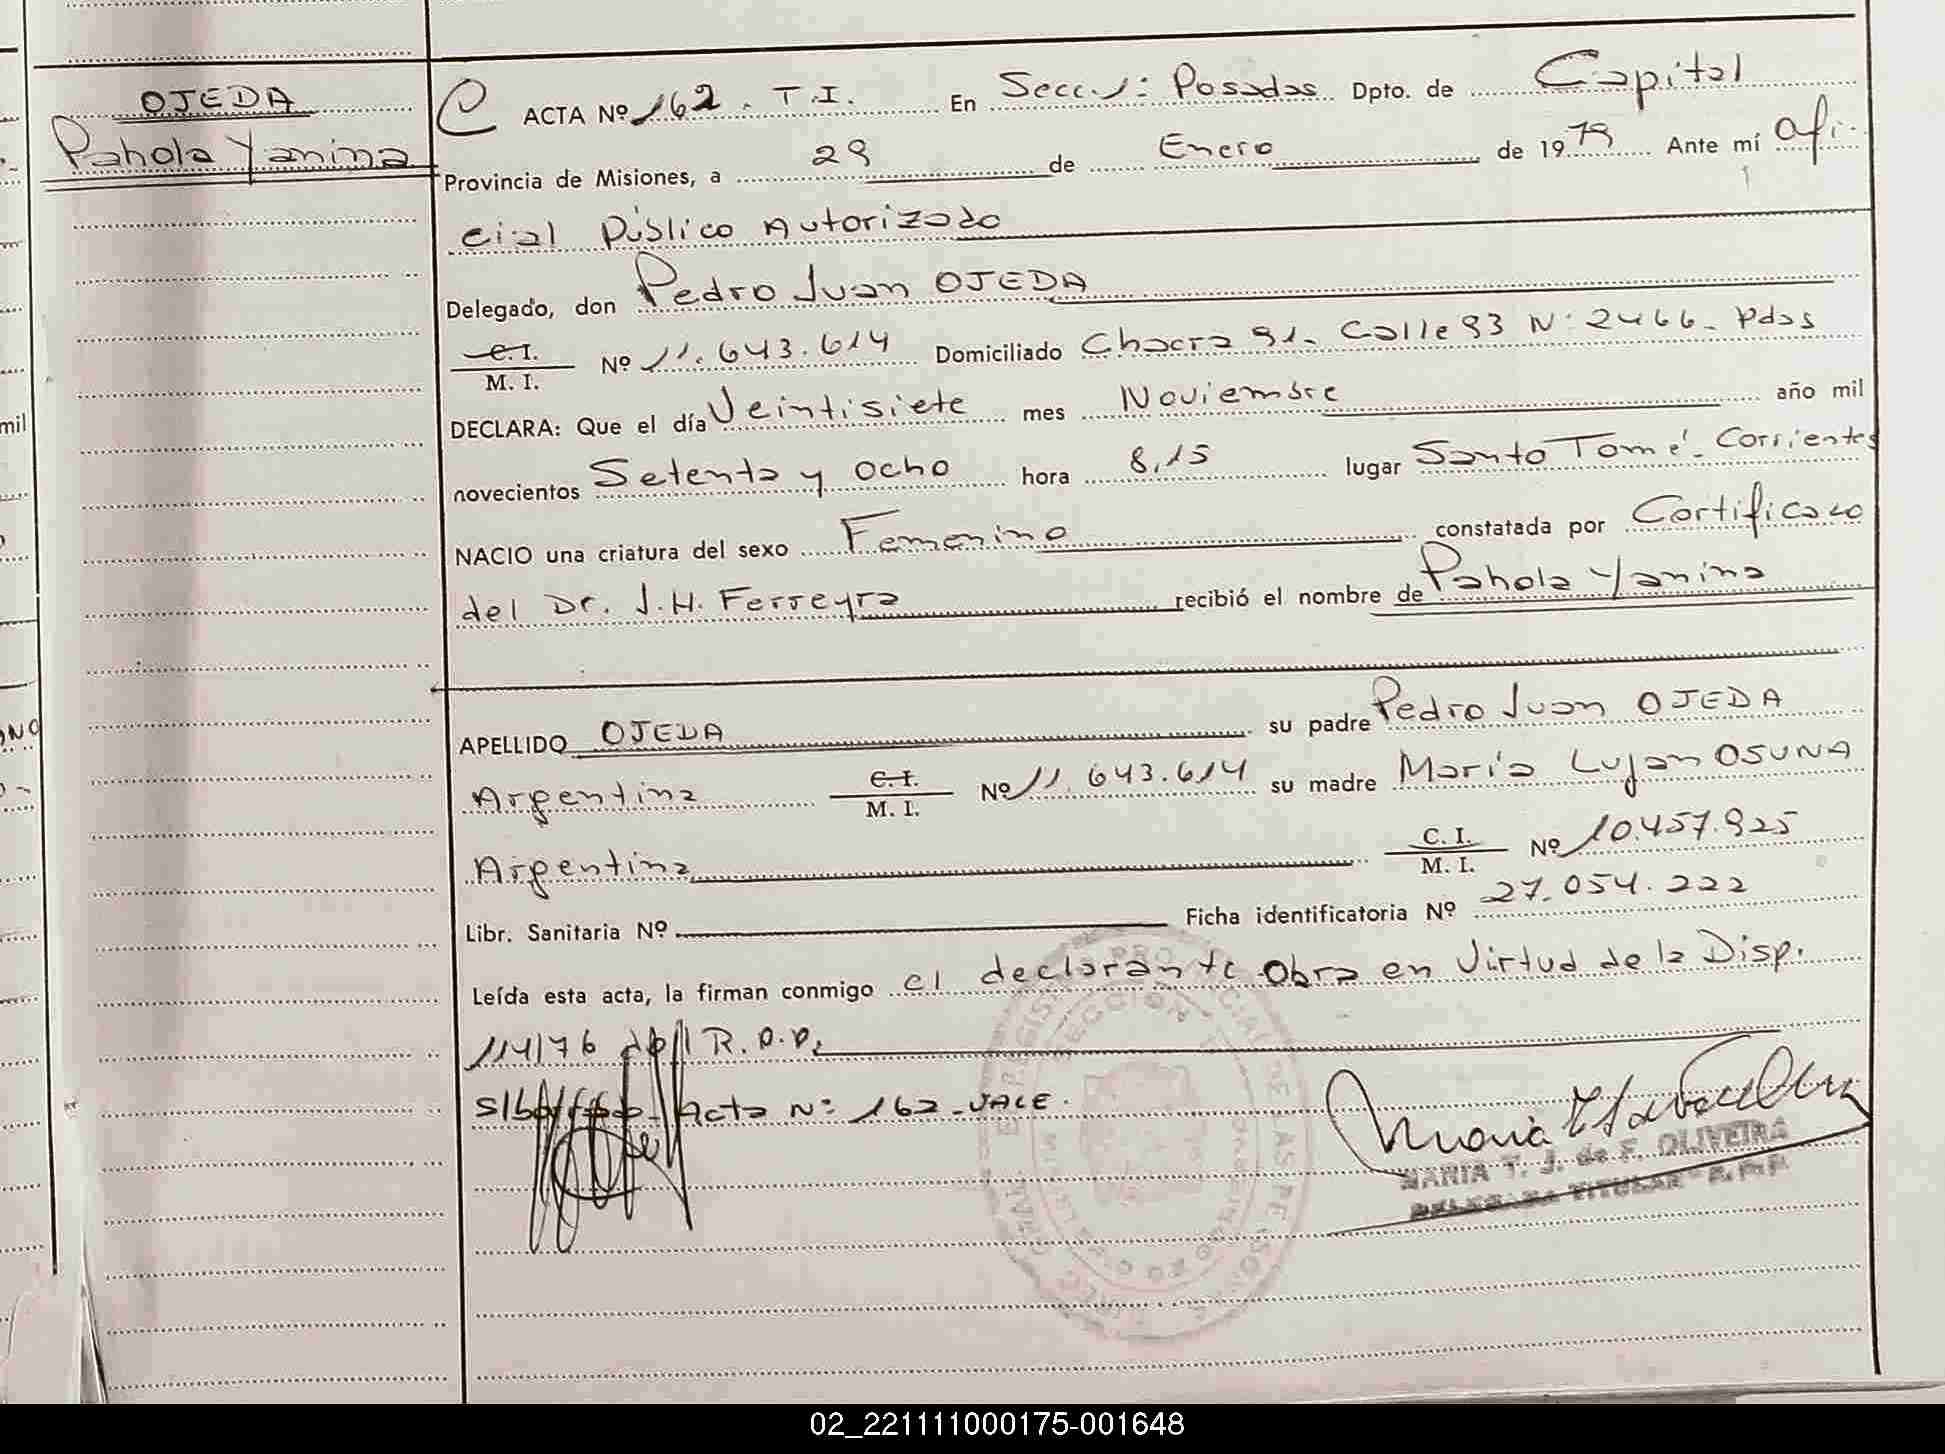 OJEDA
Pahola Yanina
C ACTA Nº 162. T.I. En Secc. 1: Posadas Dpto. de Capital
Provincia de Misiones, a 29 de Enero de 1979 Ante mí Ofi-
cial Público Autorizado
Delegado, don Pedro Juan OJEDA
C. I.
M. I.
Nº 11.643.614 Domiciliado Chacra 91. Calle 93 Nº 2466- Pdas
DECLARA: Que el día Veintisiete mes Noviembre año mil
novecientos Setenta y Ocho hora 8,15 lugar Santo Tomé- Corrientes
NACIO una criatura del sexo Femenino constatada por Certificado
del Dr. J.H. Ferreyra recibió el nombre de Pahola Yanina
APELLIDO OJEDA su padre Pedro Juan OJEDA
Argentina
C. I.
M. I.
Nº 11.643.614 su madre María Lujan OSUNA
Argentina
C. I.
M. I.
Nº 10.457.925
Libr. Sanitaria Nº Ficha identificatoria Nº 27.054.222
Leída esta acta, la firman conmigo el declarante Obra en Virtud de la Disp.
114/76 del R.P.P.
Acta Nº 162-VALE.
MARIA T. J. de F. OLIVEIRA
DELEGADA TITULAR R.P.P.
mil
02_221111000175-001648